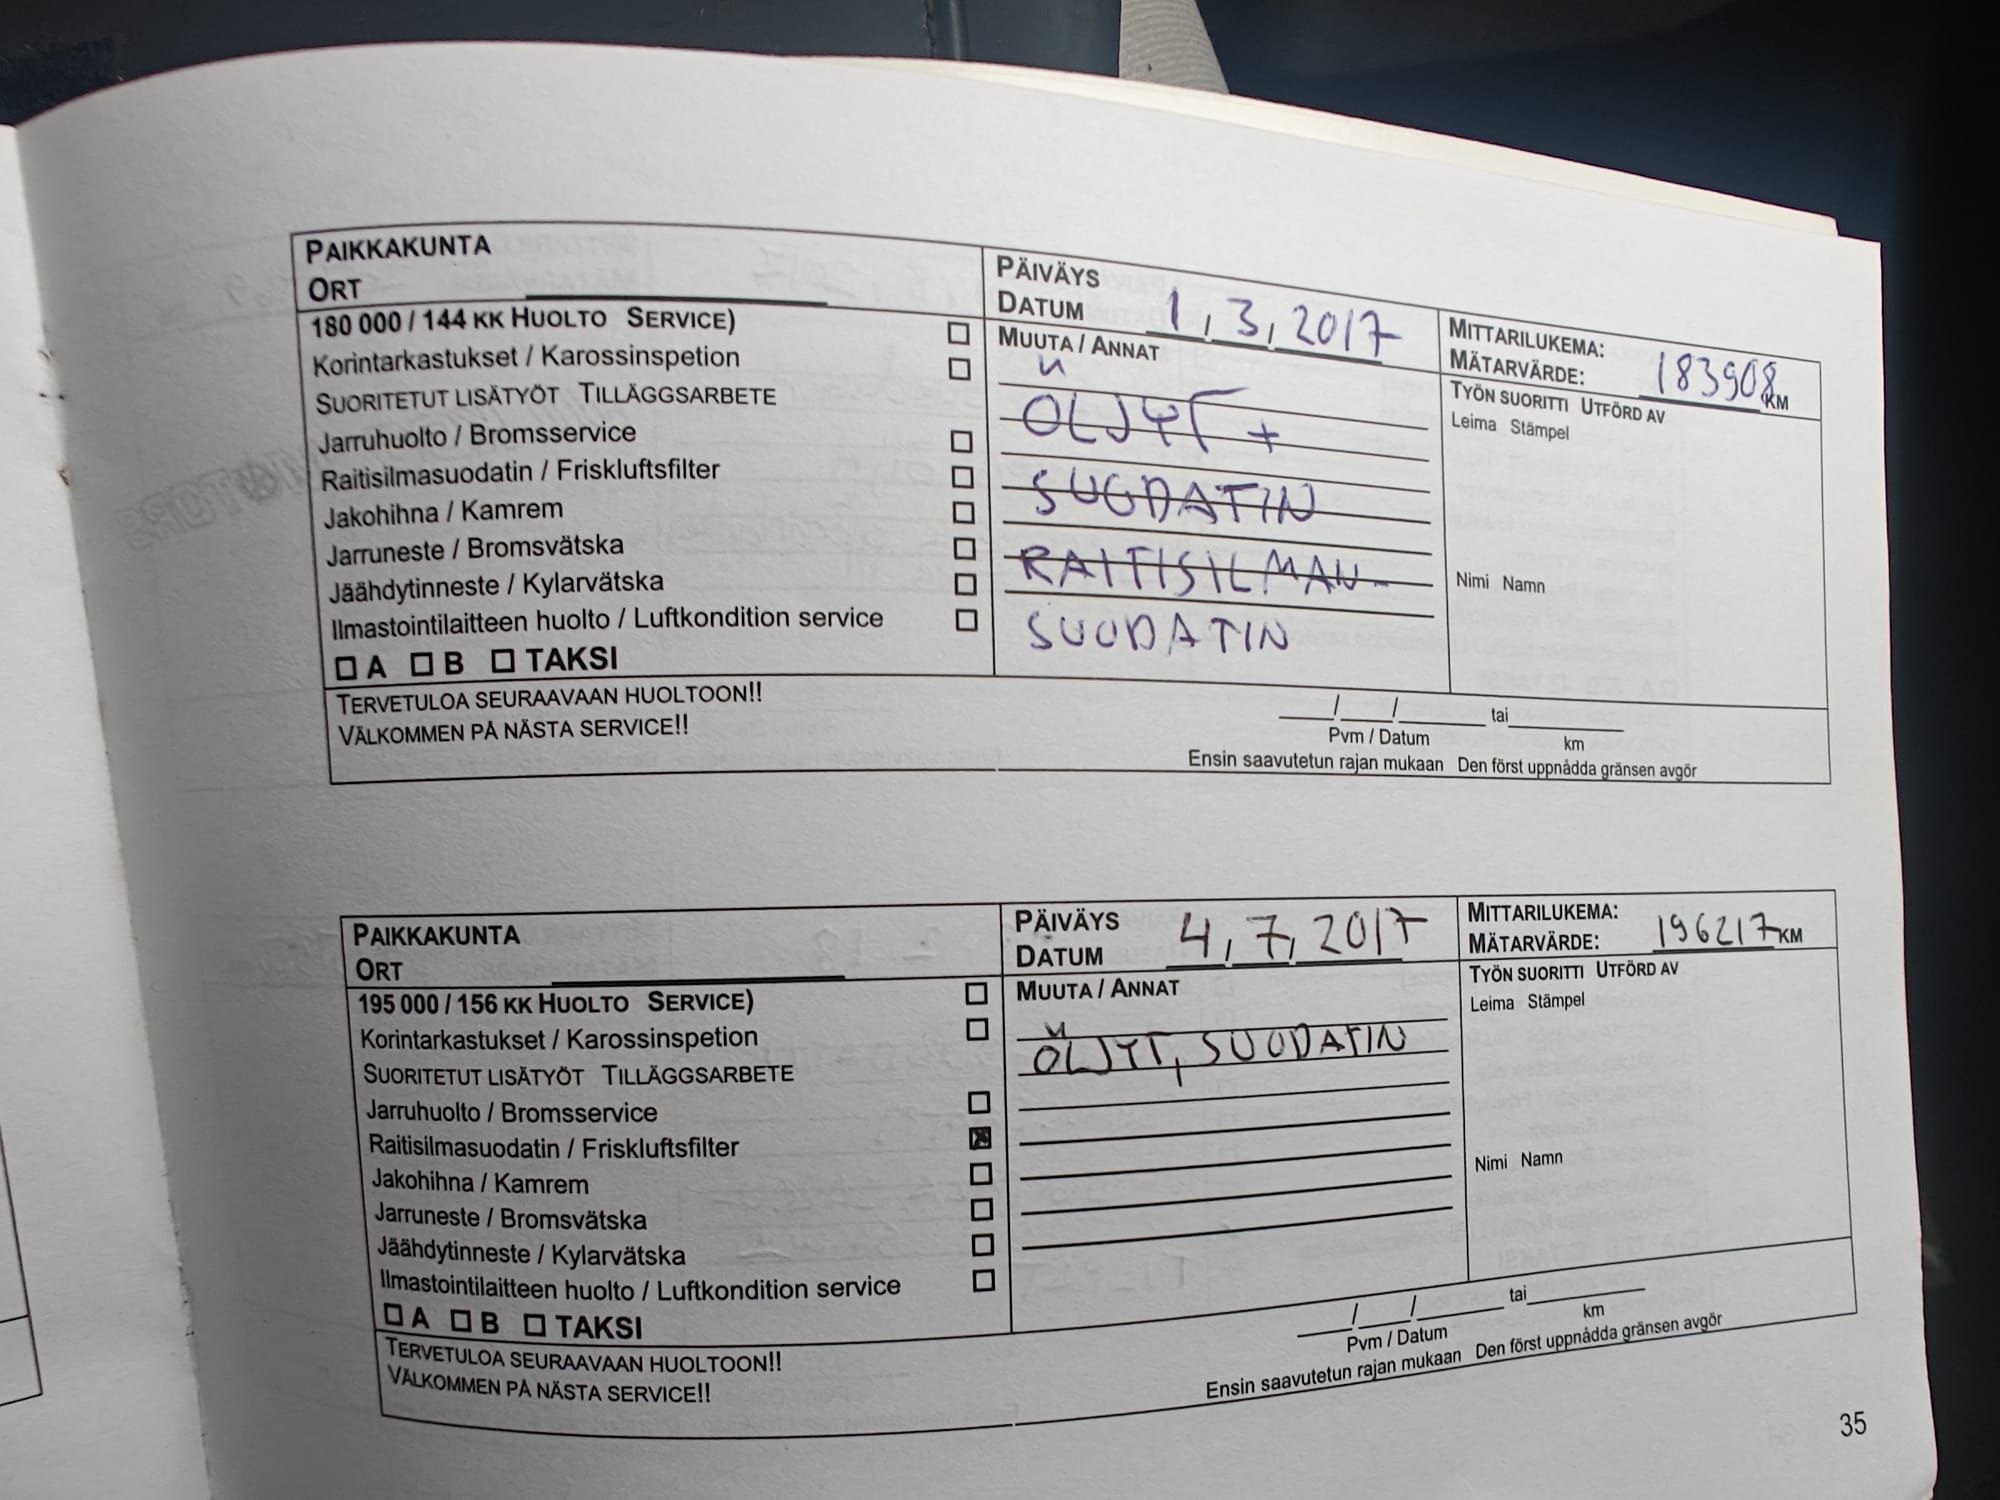 PAIKKAKUNTA
ORT
PÄIVÄYS
DATUM 1, 3, 2017
MITTARILUKEMA:
MÄTARVÄRDE: 183908 KM
180 000 / 144 KK HUOLTO SERVICE)
Korintarkastukset / Karossinspetion
SUORITETUT LISÄTYÖT TILLÄGGSARBETE
Jarruhuolto / Bromsservice
Raitisilmasuodatin / Friskluftsfilter
Jakohihna / Kamrem
Jarruneste / Bromsvätska
Jäähdytinneste / Kylarvätska
Ilmastointilaitteen huolto / Luftkondition service
A B TAKSI
MUUTA / ANNAT
ÖLJYT +
SUODATIN
RAITISILMAN-
SUODATIN
TYÖN SUORITTI UTFÖRD AV
Leima Stämpel
Nimi Namn
TERVETULOA SEURAAVAAN HUOLTOON!!
VÄLKOMMEN PÅ NÄSTA SERVICE!!
/ / tai
Pvm / Datum km
Ensin saavutetun rajan mukaan Den först uppnådda gränsen avgör
PAIKKAKUNTA
ORT
PÄIVÄYS
DATUM 4, 7, 2017
MITTARILUKEMA:
MÄTARVÄRDE: 196217 KM
195 000 / 156 KK HUOLTO SERVICE)
Korintarkastukset / Karossinspetion
SUORITETUT LISÄTYÖT TILLÄGGSARBETE
Jarruhuolto / Bromsservice
Raitisilmasuodatin / Friskluftsfilter
Jakohihna / Kamrem
Jarruneste / Bromsvätska
Jäähdytinneste / Kylarvätska
Ilmastointilaitteen huolto / Luftkondition service
A B TAKSI
MUUTA / ANNAT
ÖLJYT, SUODATIN
TYÖN SUORITTI UTFÖRD AV
Leima Stämpel
Nimi Namn
TERVETULOA SEURAAVAAN HUOLTOON!!
VÄLKOMMEN PÅ NÄSTA SERVICE!!
/ / tai
Pvm / Datum km
Ensin saavutetun rajan mukaan Den först uppnådda gränsen avgör
35